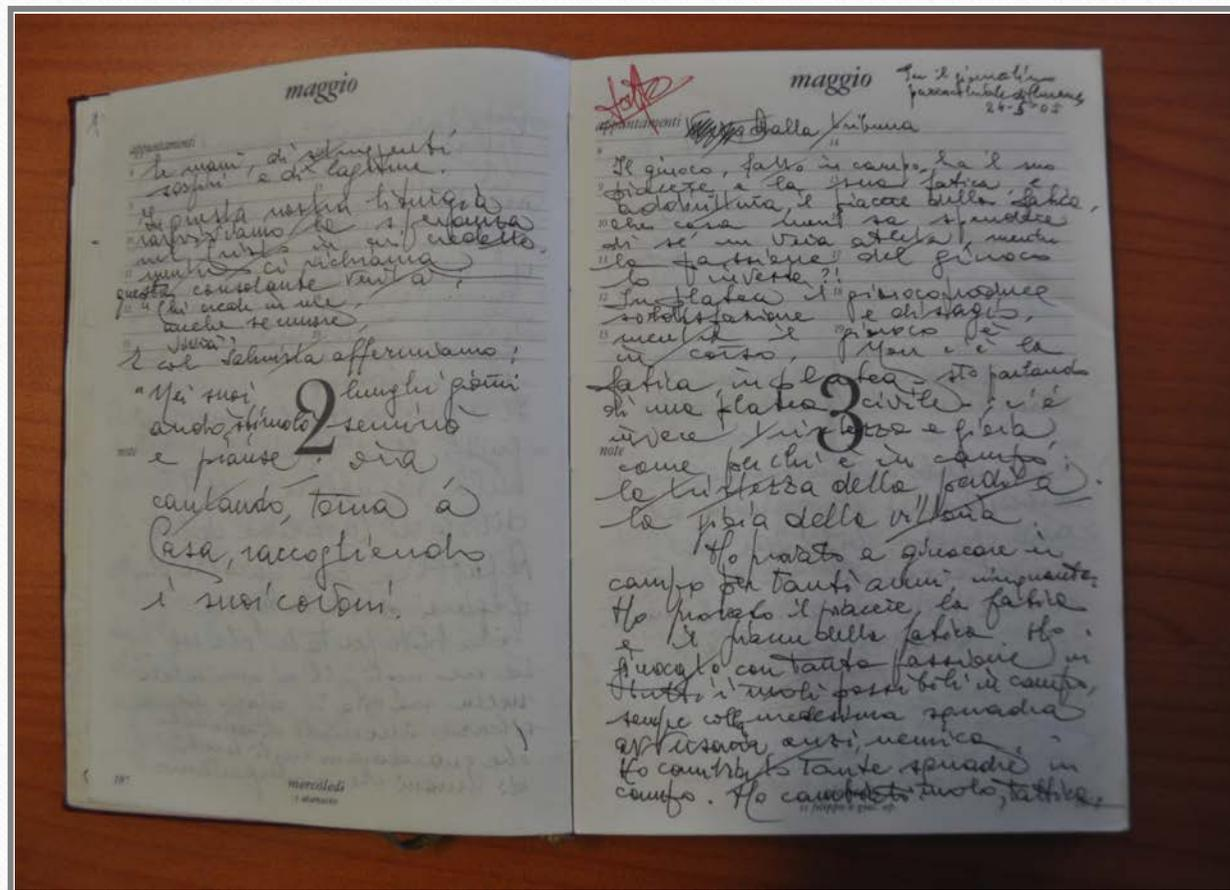 maggio
appuntamenti
le mani, di
sospiri e di lagrime.
In questa nostra liturgia
ravvisiamo la speranza
nel Cristo in cui credette,
mentre ci richiama
questa consolante verità:
"Chi crede in me,
anche se muore,
vivrà".
E col Salmista affermiamo:
"Nei suoi lunghi giorni
andò, seminò
2
note
e pianse: ora
cantando, torna a
Casa, raccogliendo
i suoi covoni.
mercoledì
s. atanasio
maggio
Per il giornalino
parrocchiale di
24-5-05
fatto
appuntamenti
Dalla Tribuna
Il giuoco, fatto in campo, ha il suo
piacere e la sua fatica, e
addirittura il piacere della fatica,
che cosa non sa spendere
di sé un vero atleta, mentre
la passione del giuoco
lo investe?!
In platea il giuoco produce
soddisfazione e disagio,
mentre il giuoco è
in corso. Non c'è la
fatica, in platea - sto parlando
di una platea civile - c'è
3
invece tristezza e gioia,
note
come per chi è in campo:
la tristezza della perdita
la gioia della vittoria.
Ho provato a giuocare in
campo per tanti anni cinquanta.
Ho provato il piacere, la fatica
e il piacere della fatica. Ho
giuocato con tanta passione in
tutti i ruoli possibili in campo,
sempre colla medesima squadra
avversaria, anzi, nemica.
Ho cambiato tante squadre in
campo. Ho cambiato ruolo, tattica,
ss. filippo e giac. ap.